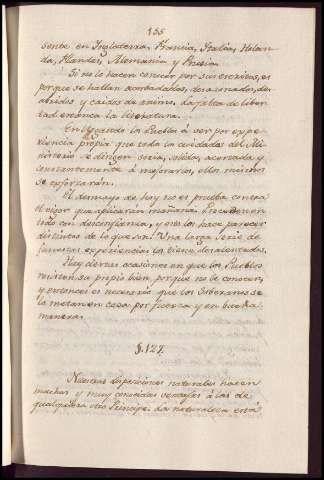 155
sente en Inglaterra, Francia, Italia, Holan-
da, Flandes, Alemania y Prusia.
Si no lo hacen conocer por sus escritos, es
porque se hallan acobardados, desazonados, de-
abridos y caidos de animo. La falta de liber-
tad entorpece la literatura.
En llegando los Pueblos á ser por expe-
riencia propia que todos los cuidados del Mi-
nisterio se dirigen seria, solida, acertada y
constantemente á mejorarlos, ellos mismos
se esforzarán.
El desmayo de hoy no es prueba contra
el vigor que aplicarán mañana. Proceden en
todo con desconfianza, y eso los hace parecer
distintos de lo que son. Una larga serie de
funestas experiencias los tiene desalentados.
Hay ciertas ocasiones en que los Pueblos
resisten su propio bien, porque no le conocen,
y entonces es necesario que los Soberanos se
le metan en casa por fuerza y en buena
manera.
§. 127.
Nuestras disposiciones naturales hacen
muchas y muy conocidas ventajas á las de
qualquiera otro Principe. La naturaleza está